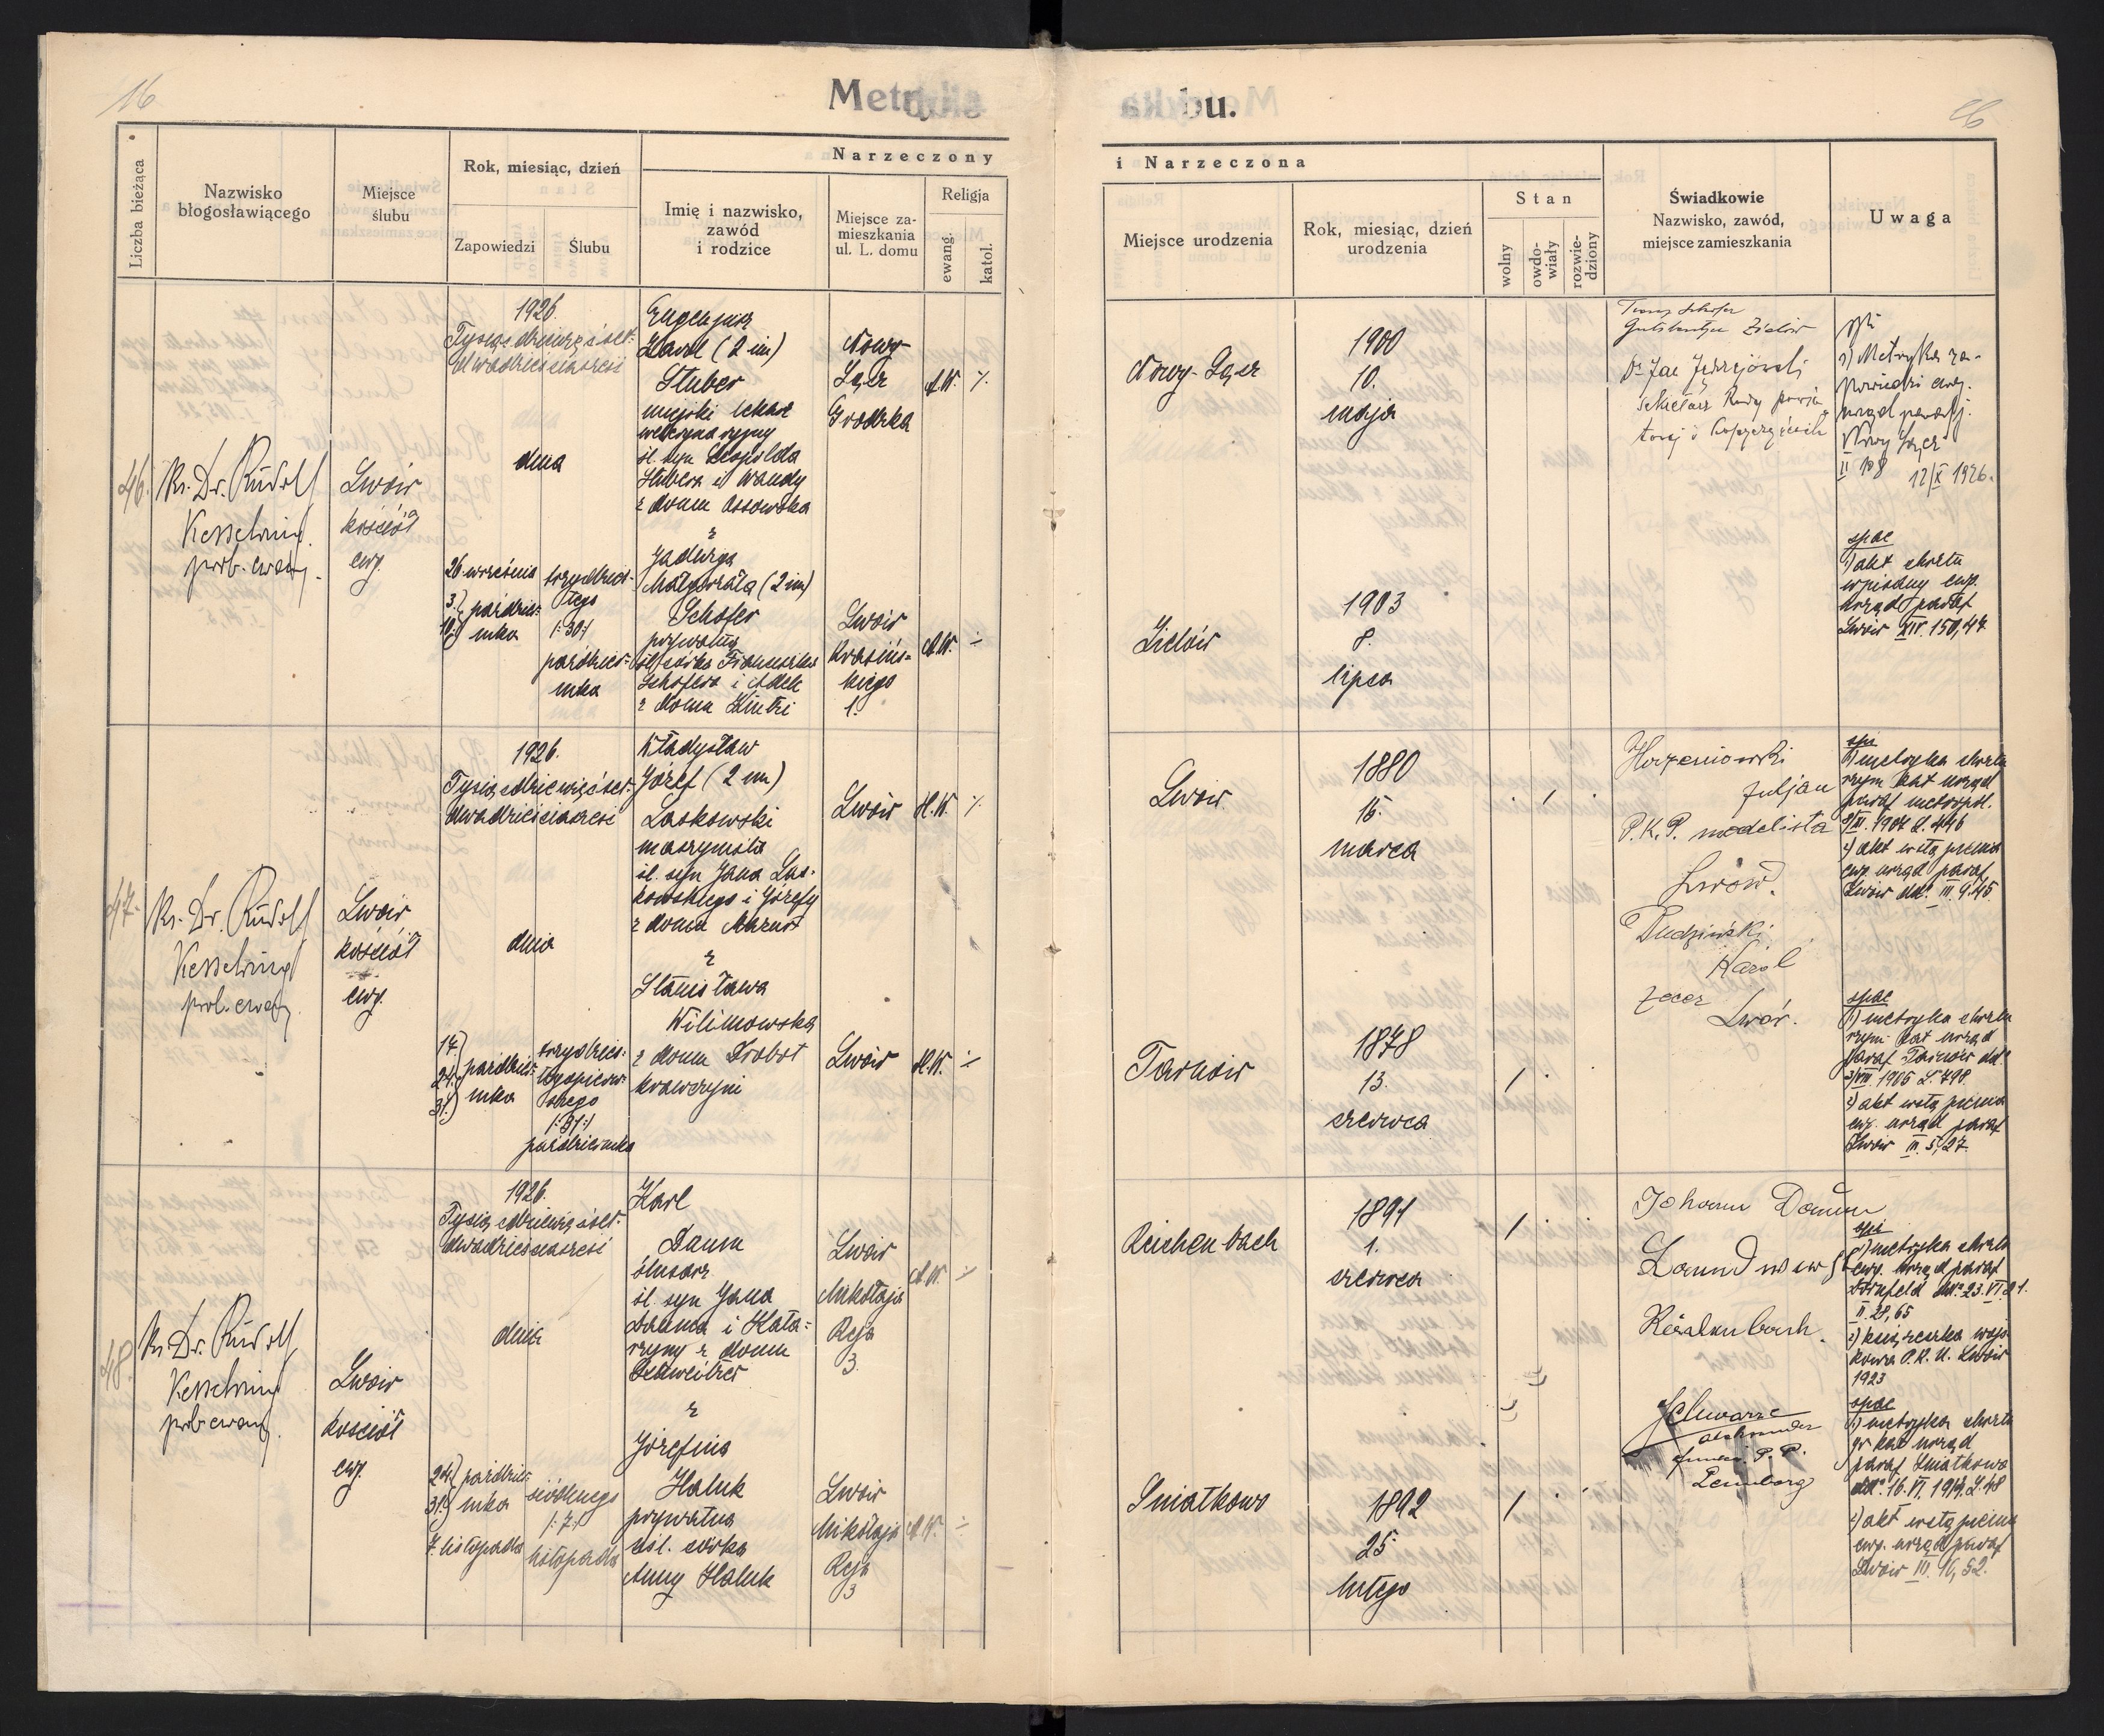 16
Metryka
ślubu.
Liczba bieżąca
Nazwisko
błogosławiącego
Miejsce
ślubu
Rok, miesiąc, dzień
Zapowiedzi
Ślubu
Narzeczony
Imię i nazwisko,
zawód
i rodzice
Miejsce za-
mieszkania
ul. L. domu
Religja
ewang.
katol.
i Narzeczona
Miejsce urodzenia
Rok, miesiąc, dzień
urodzenia
Stan
wolny
owdo-
wiały
rozwie-
dziony
Świadkowie
Nazwisko, zawód,
miejsce zamieszkania
Uwaga
46.
Ks. Dr. Rudolf
Kesselring
prob. ewang.
Lwów
kościół
ewg.
1926.
Tysiąc dziewięćset-
dwadzieściasześć
dnia
26 września
3.) paździer-
10.) nika
trzydzies-
tego
/:30:/
paździer-
nika
Eugenjusz
Karol (2 im)
Stuber
miejski lekarz
weterynaryjny
śl. syn Leopolda
Stubera i Wandy
z domu Ossowska
z
Jadwiga
Małgorzata (2 im)
Schofer
prywatna
śl. córka Franciszka
Schofera i Adeli
z domu
Nowy-
Sącz
Grodzka
A.W. ./.
Lwów
Krasińs-
kiego
1.
A.W.
Nowy-Sącz
1900
10.
maja
Zielów
1903
8.
lipca
Zielów
Dr Jan Jędrzejowski
sekretarz Rady powia-
towej
1) Metryka za-
powiedzi ewg.
urząd paraf.
Nowy Sącz
II 108
12/X 1926.
spae
1) akt chrztu
wpisany ewg.
urząd paraf
Lwów XIV. 150,47
47.
Ks. Dr. Rudolf
Kesselring
prob. ewang.
Lwów
kościół
ewg.
1926.
Tysiąc dziewięćset-
dwadzieściasześć
dnia
17.) paździer-
24.) nika
31.)
trzydzies-
tegopierw-
szego
/:31:/
października
Władysław
Józef (2 im)
Laskowski
maszynista
śl. syn Jana Las-
kowskiego i Józefy
z domu
z
Stanisława
Wilimowska
z domu Drobot
krawczyni
Lwów
H.W. ./.
Lwów
H.W.
Lwów
1880
15.
marca
Tarnów
1878
13.
czerwca
Korzeniowski
Juljan
P.K.P. modelista
Lwów.
Dudziński
Karol
zecer
Lwów.
1) metryka chrztu
rzym kat urząd
paraf metropol.
2) akt wstąpienia
ewg. urząd paraf
spae
1) metryka chrztu
rzym. kat urząd
paraf Tarnów dd.
1905 L. 798.
2) akt wstąpienia
ewg. urząd paraf
Lwów III. 5,27.
48.
Ks. Dr. Rudolf
Kesselring
prob. ewang.
Lwów
kościół
ewg.
1926.
Tysiąc dziewięćset-
dwadzieściasześć
dnia
24.) paździer-
31.) nika
7. listopada
siódmego
/:7:/
listopada
Karl
Daum
ślusarz
śl. syn Jana
Dauma i Kata-
rzyny z domu
Schweitzer
z
Józefina
Haluk
prywatna
córka
Anny Haluk
Lwów
Mikołaja
Reja
3.
A.W.
Lwów
Mikołaja
Reja
3
A.W.
Reichenbach
1891
1.
czerwca
Śniatkowo
1892
25.
lutego
Johann Daum
Landwirt
Schwarze
P.P.
Lemberg
1) metryka chrztu
ewg. urząd paraf
Dornfeld
II. 28, 65
2) książeczka wojs-
kowa P.K.U. Lwów
1923
spae
1) metryka chrztu
gr kat urząd
paraf Śniatkowo
2) akt wstąpienia
ewg. urząd paraf
Lwów III. 16, 52.